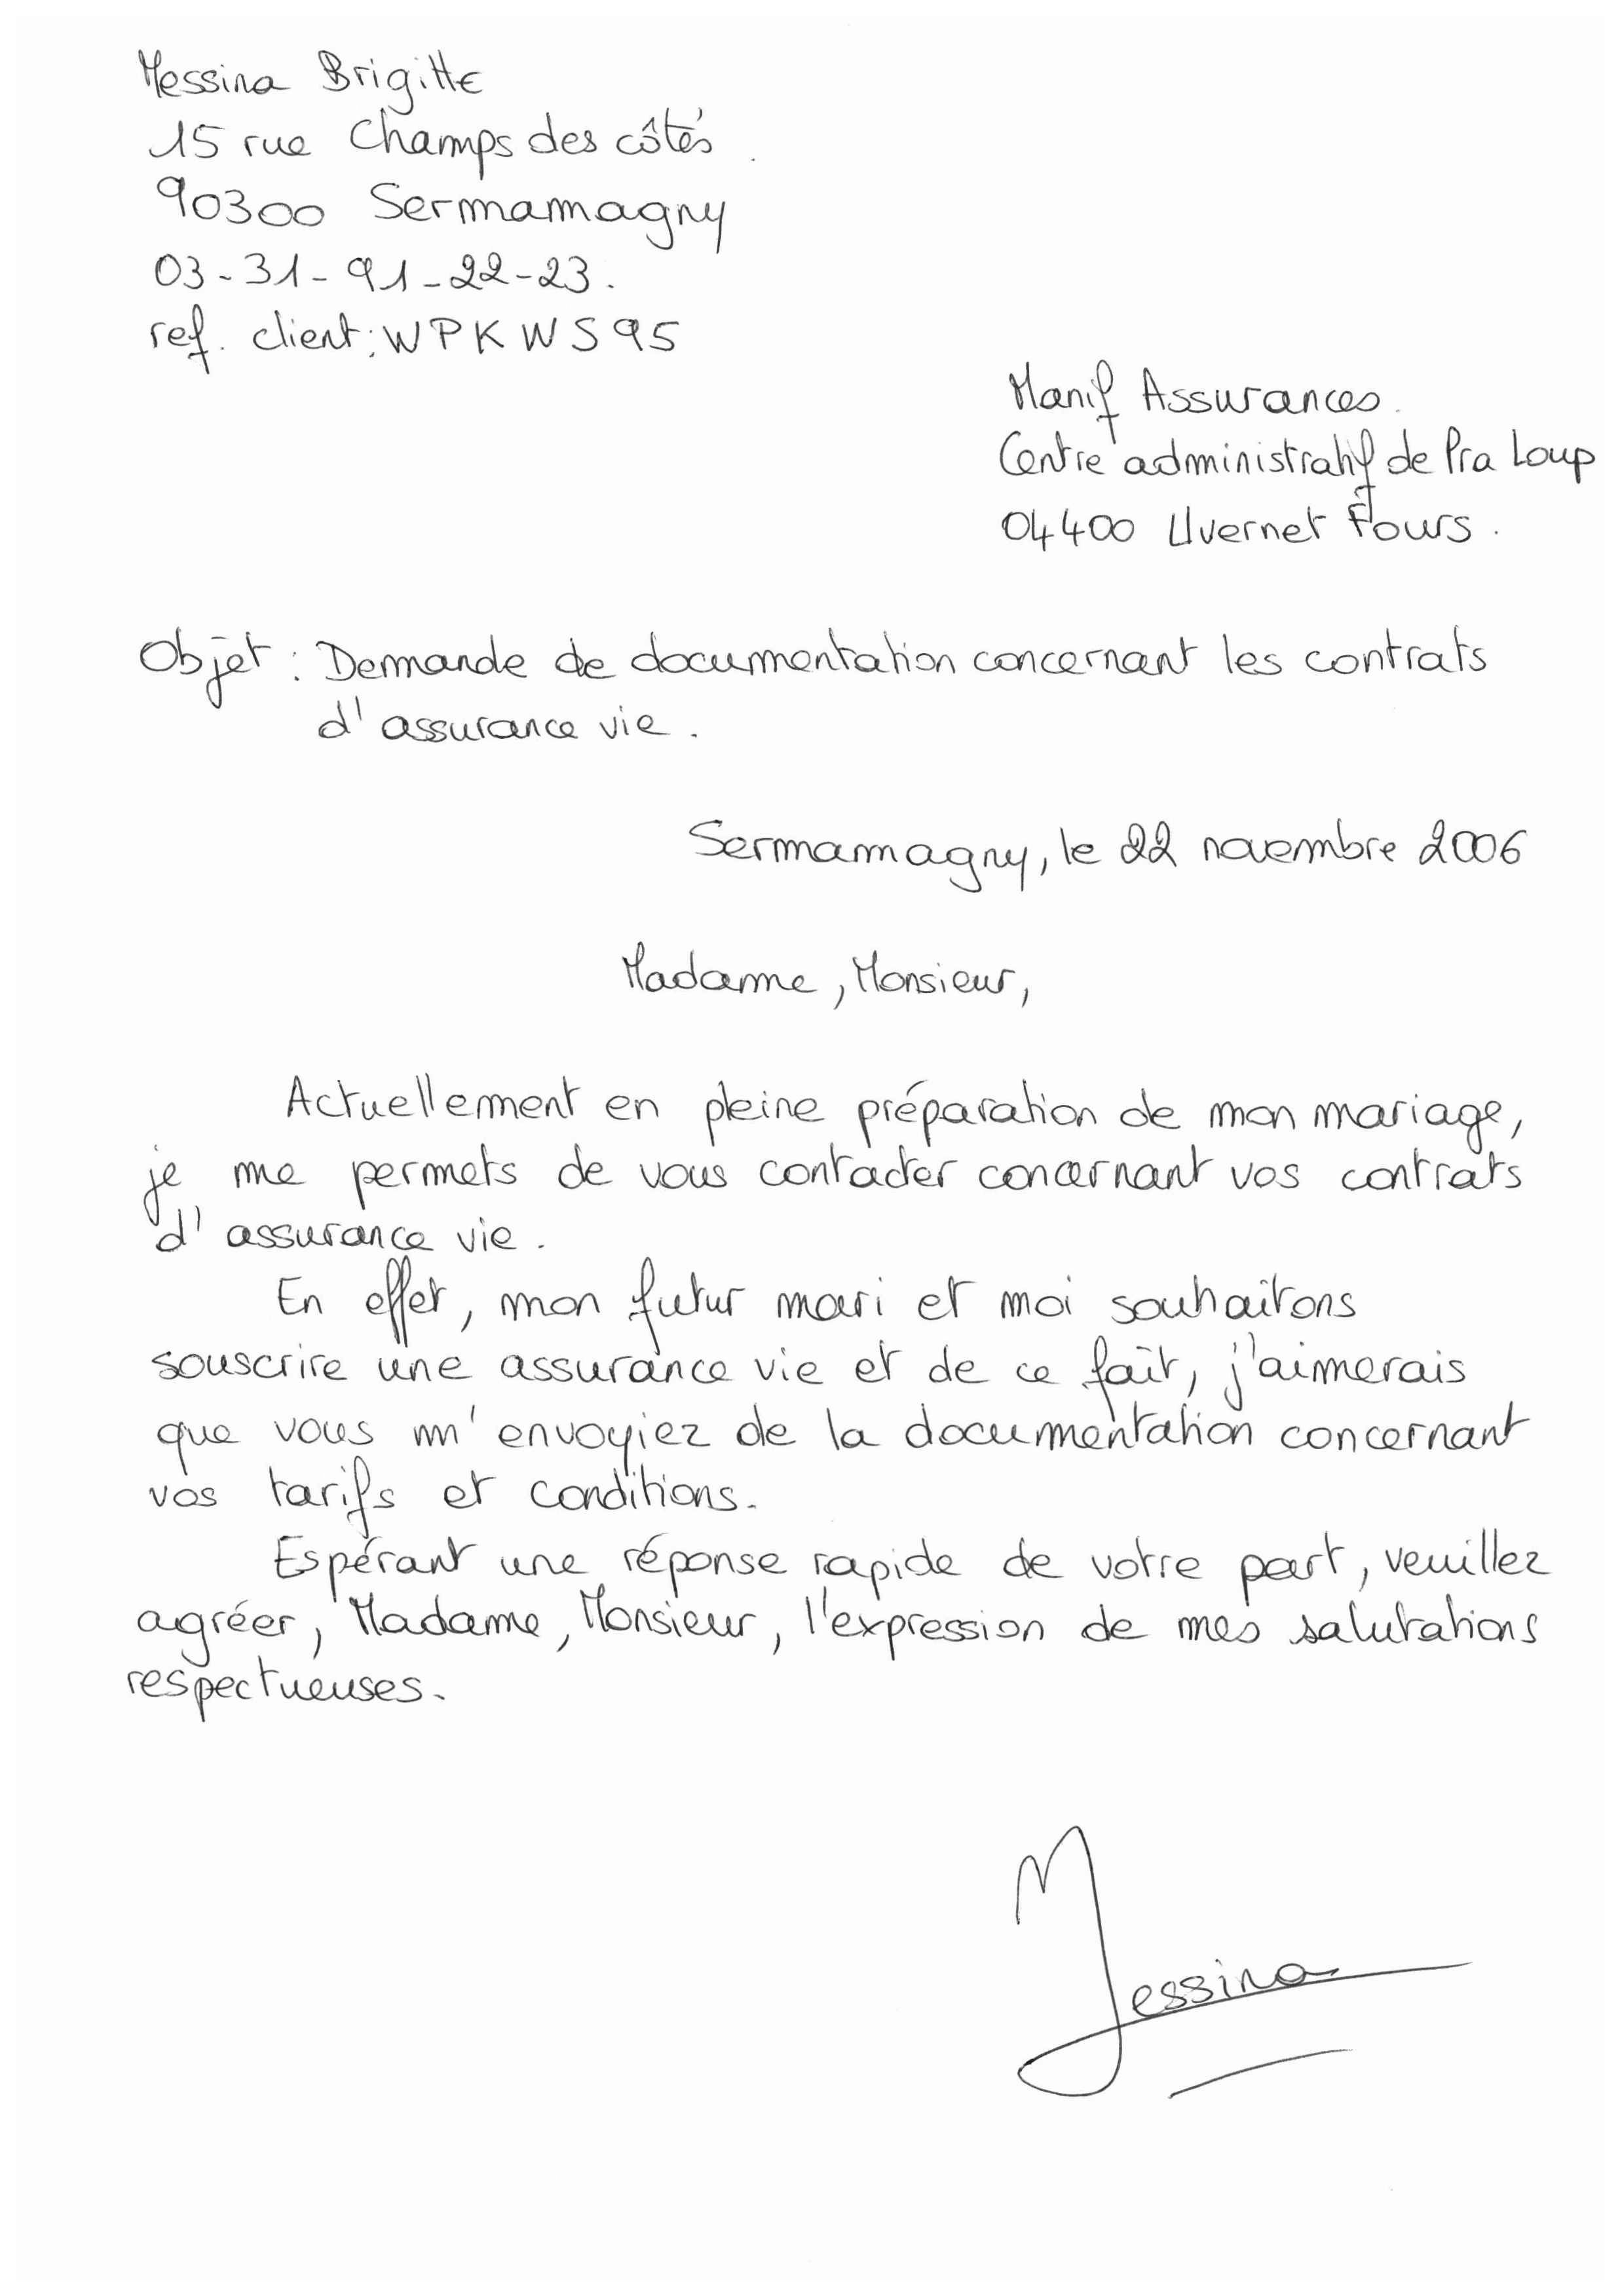 Messina Brigitte
15 rue Champs des côtés
90300 Sermamagny
03-31-91-22-23.
ref. client: WPKWS95
Manif Assurances.
Centre administratif de Pra Loup
04400 Uvernet Fours.
Objet : Demande de documentation concernant les contrats
d'assurance vie.
Sermamagny, le 22 novembre 2006
Madame, Monsieur,
Actuellement en pleine préparation de mon mariage,
je me permets de vous contacter concernant vos contrats
d'assurance vie.
En effet, mon futur mari et moi souhaitons
souscrire une assurance vie et de ce fait, j'aimerais
que vous m'envoyiez de la documentation concernant
vos tarifs et conditions.
Espérant une réponse rapide de votre part, veuillez
agréer, Madame, Monsieur, l'expression de mes salutations
respectueuses.
Messina